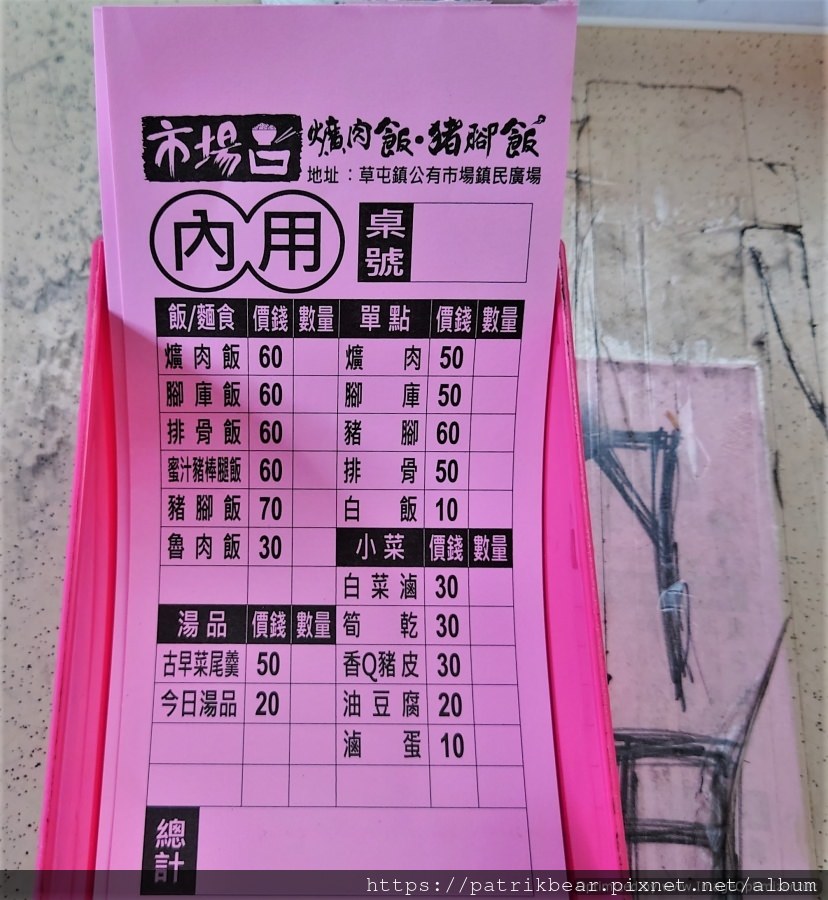 市場 爌肉飯·豬腳飯
地址：草屯鎮公有市場鎮民廣場
內用 桌號
飯/麵食 價錢 數量 單點 價錢 數量
爌肉飯 60 爌肉 50
腳庫飯 60 腳庫 50
排骨飯 60 豬腳 60
蜜汁豬棒腿飯 60 排骨 50
豬腳飯 70 白飯 10
魯肉飯 30 小菜 價錢 數量
白菜滷 30
湯品 價錢 數量 筍乾 30
古早菜尾羹 50 香Q豬皮 30
今日湯品 20 油豆腐 20
滷蛋 10
總計
https://patrikbear.pixnet.net/album